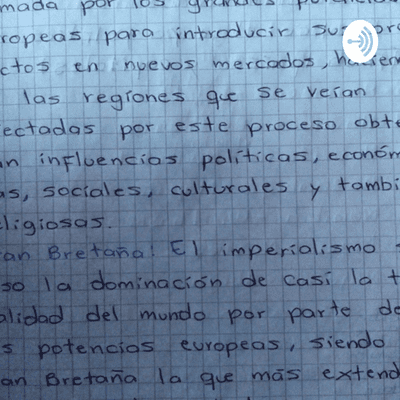 mada por los grandes
ropeas para introducir sus pro
ctos en nuevos mercados,
las regiones que se verian
ectadas por este proceso obt
an influencias políticas, económ
as, sociales, culturales y tambi
ligiosas.
an Bretaña: El imperialismo
so la dominación de casi la t
alidad del mundo por parte de
s potencias europeas, siendo
an Bretaña la que más extend